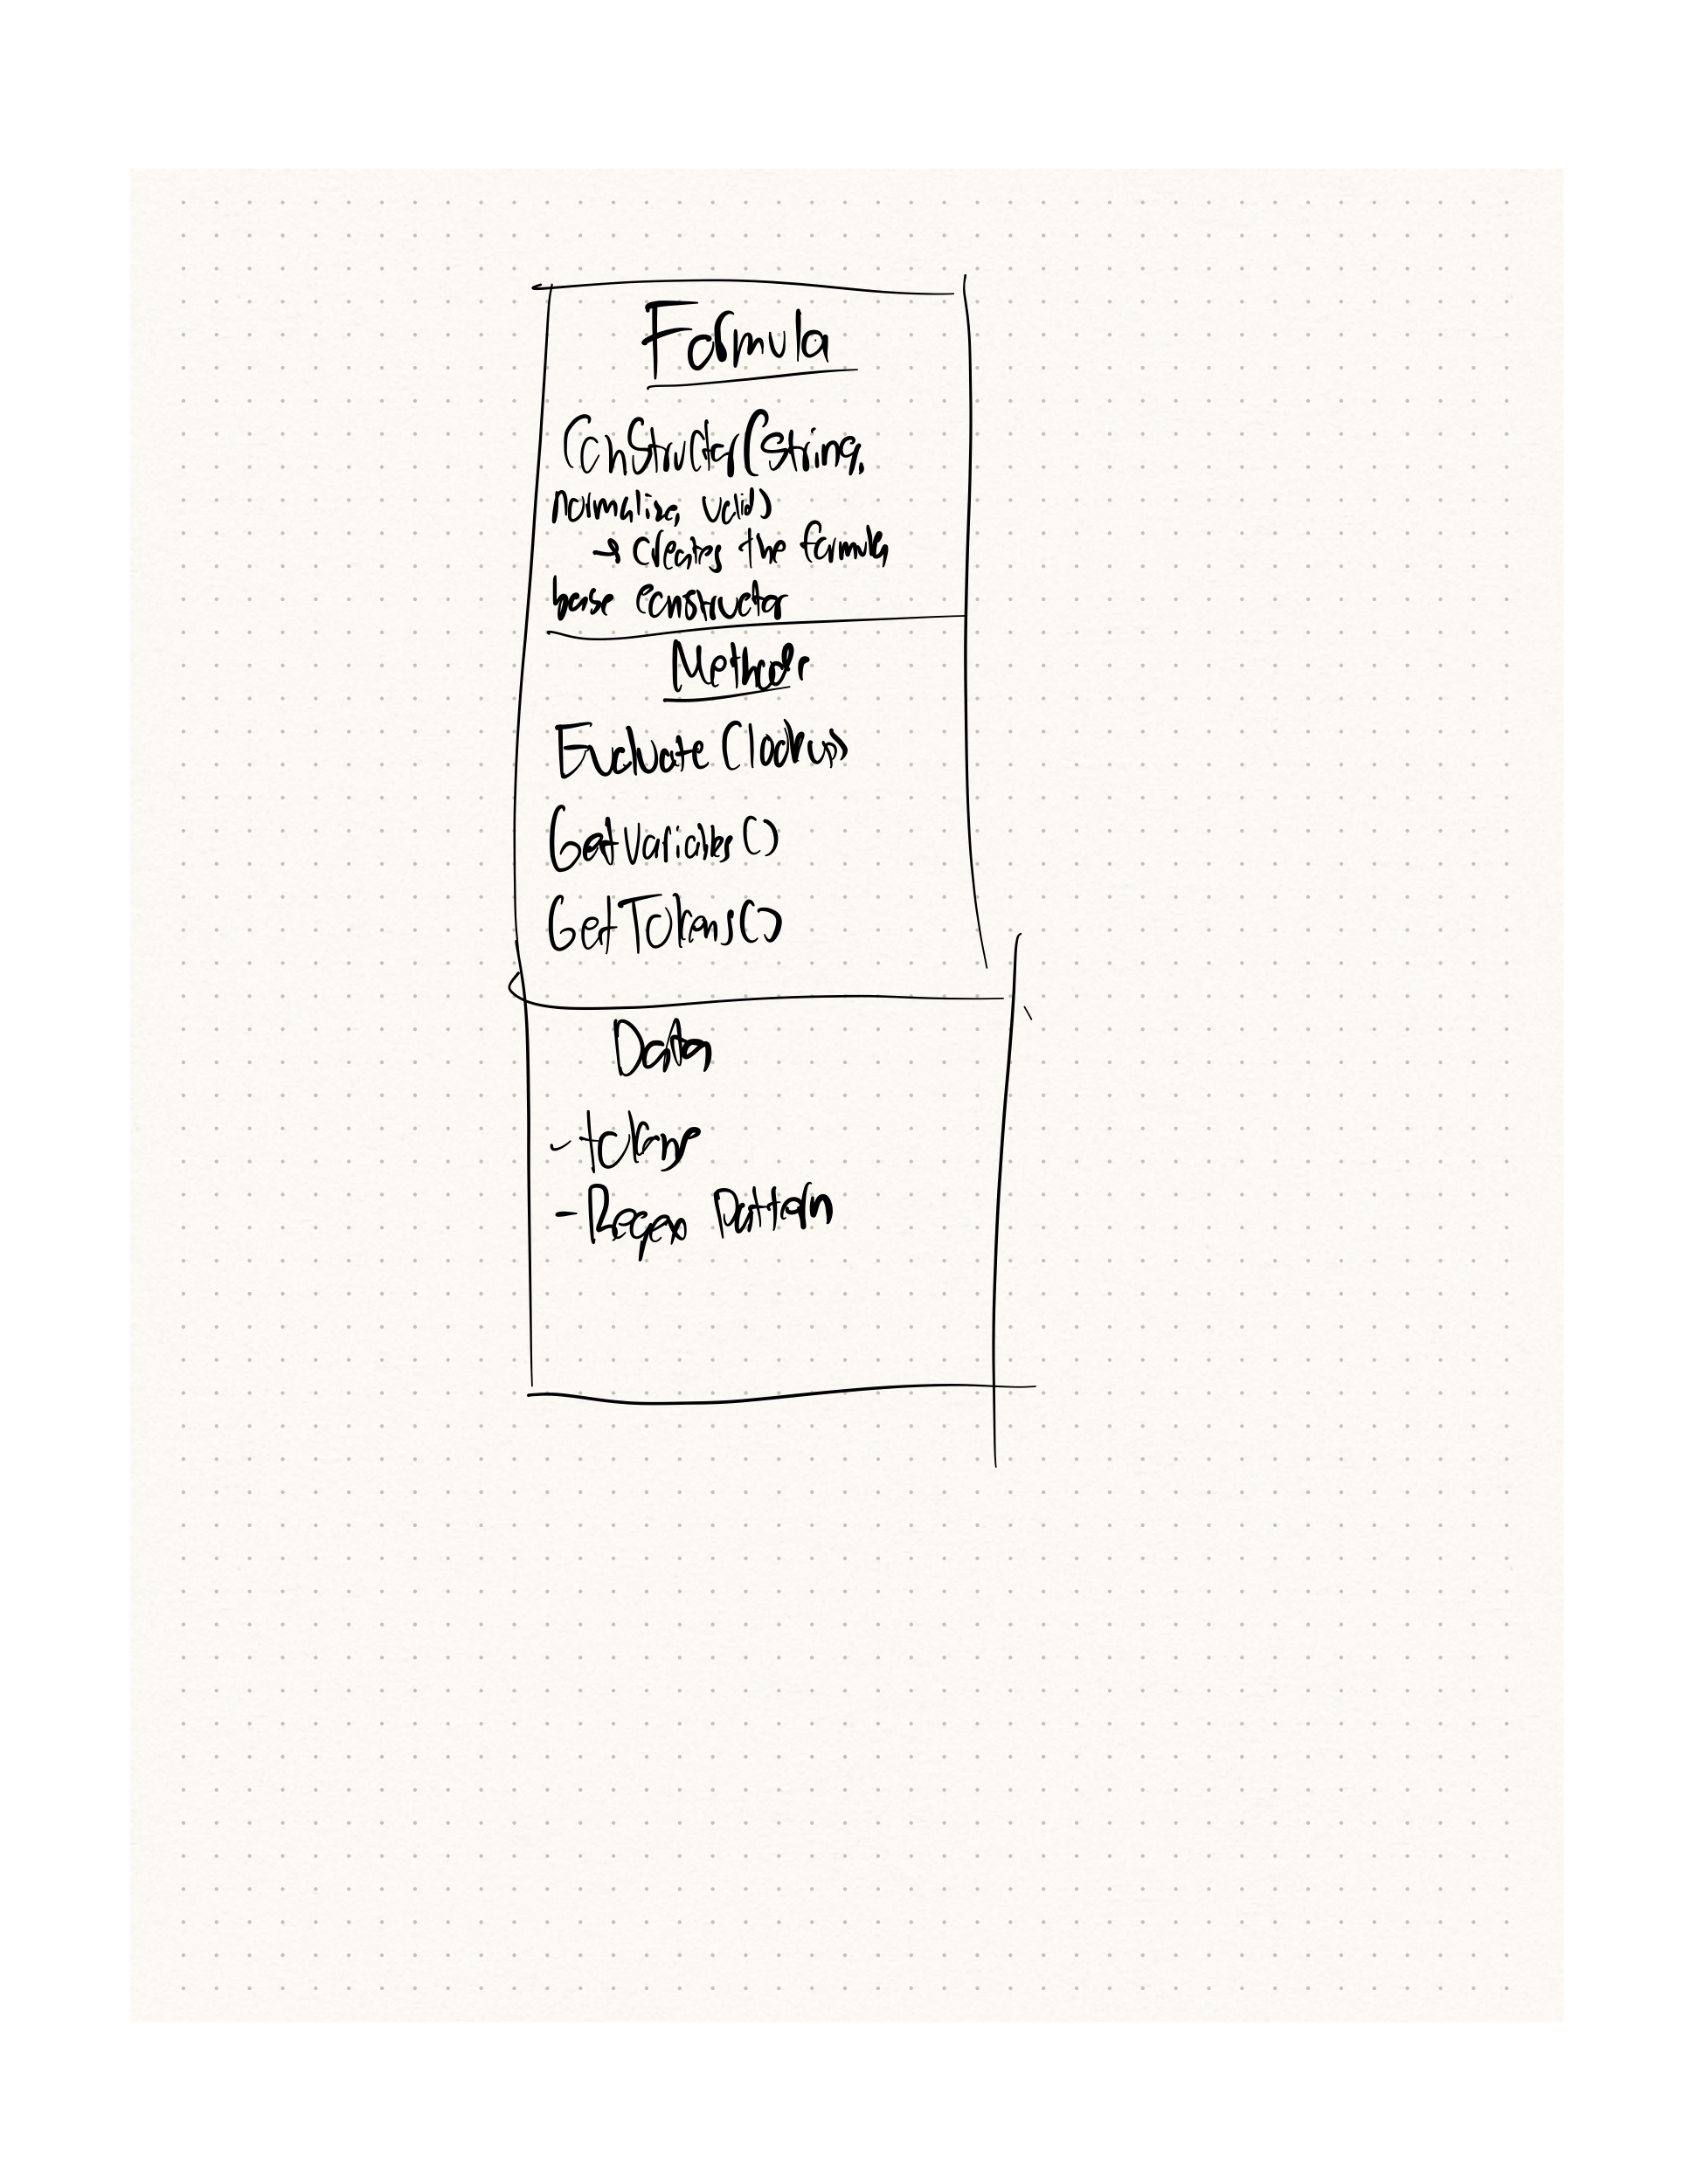 Formula
Constructor(string,
normalize, valid)
→ creates the formula
base constructor
Methods
Evaluate (lookup)
GetVariables()
GetTokens()
Data
- tokens
- Regex Pattern